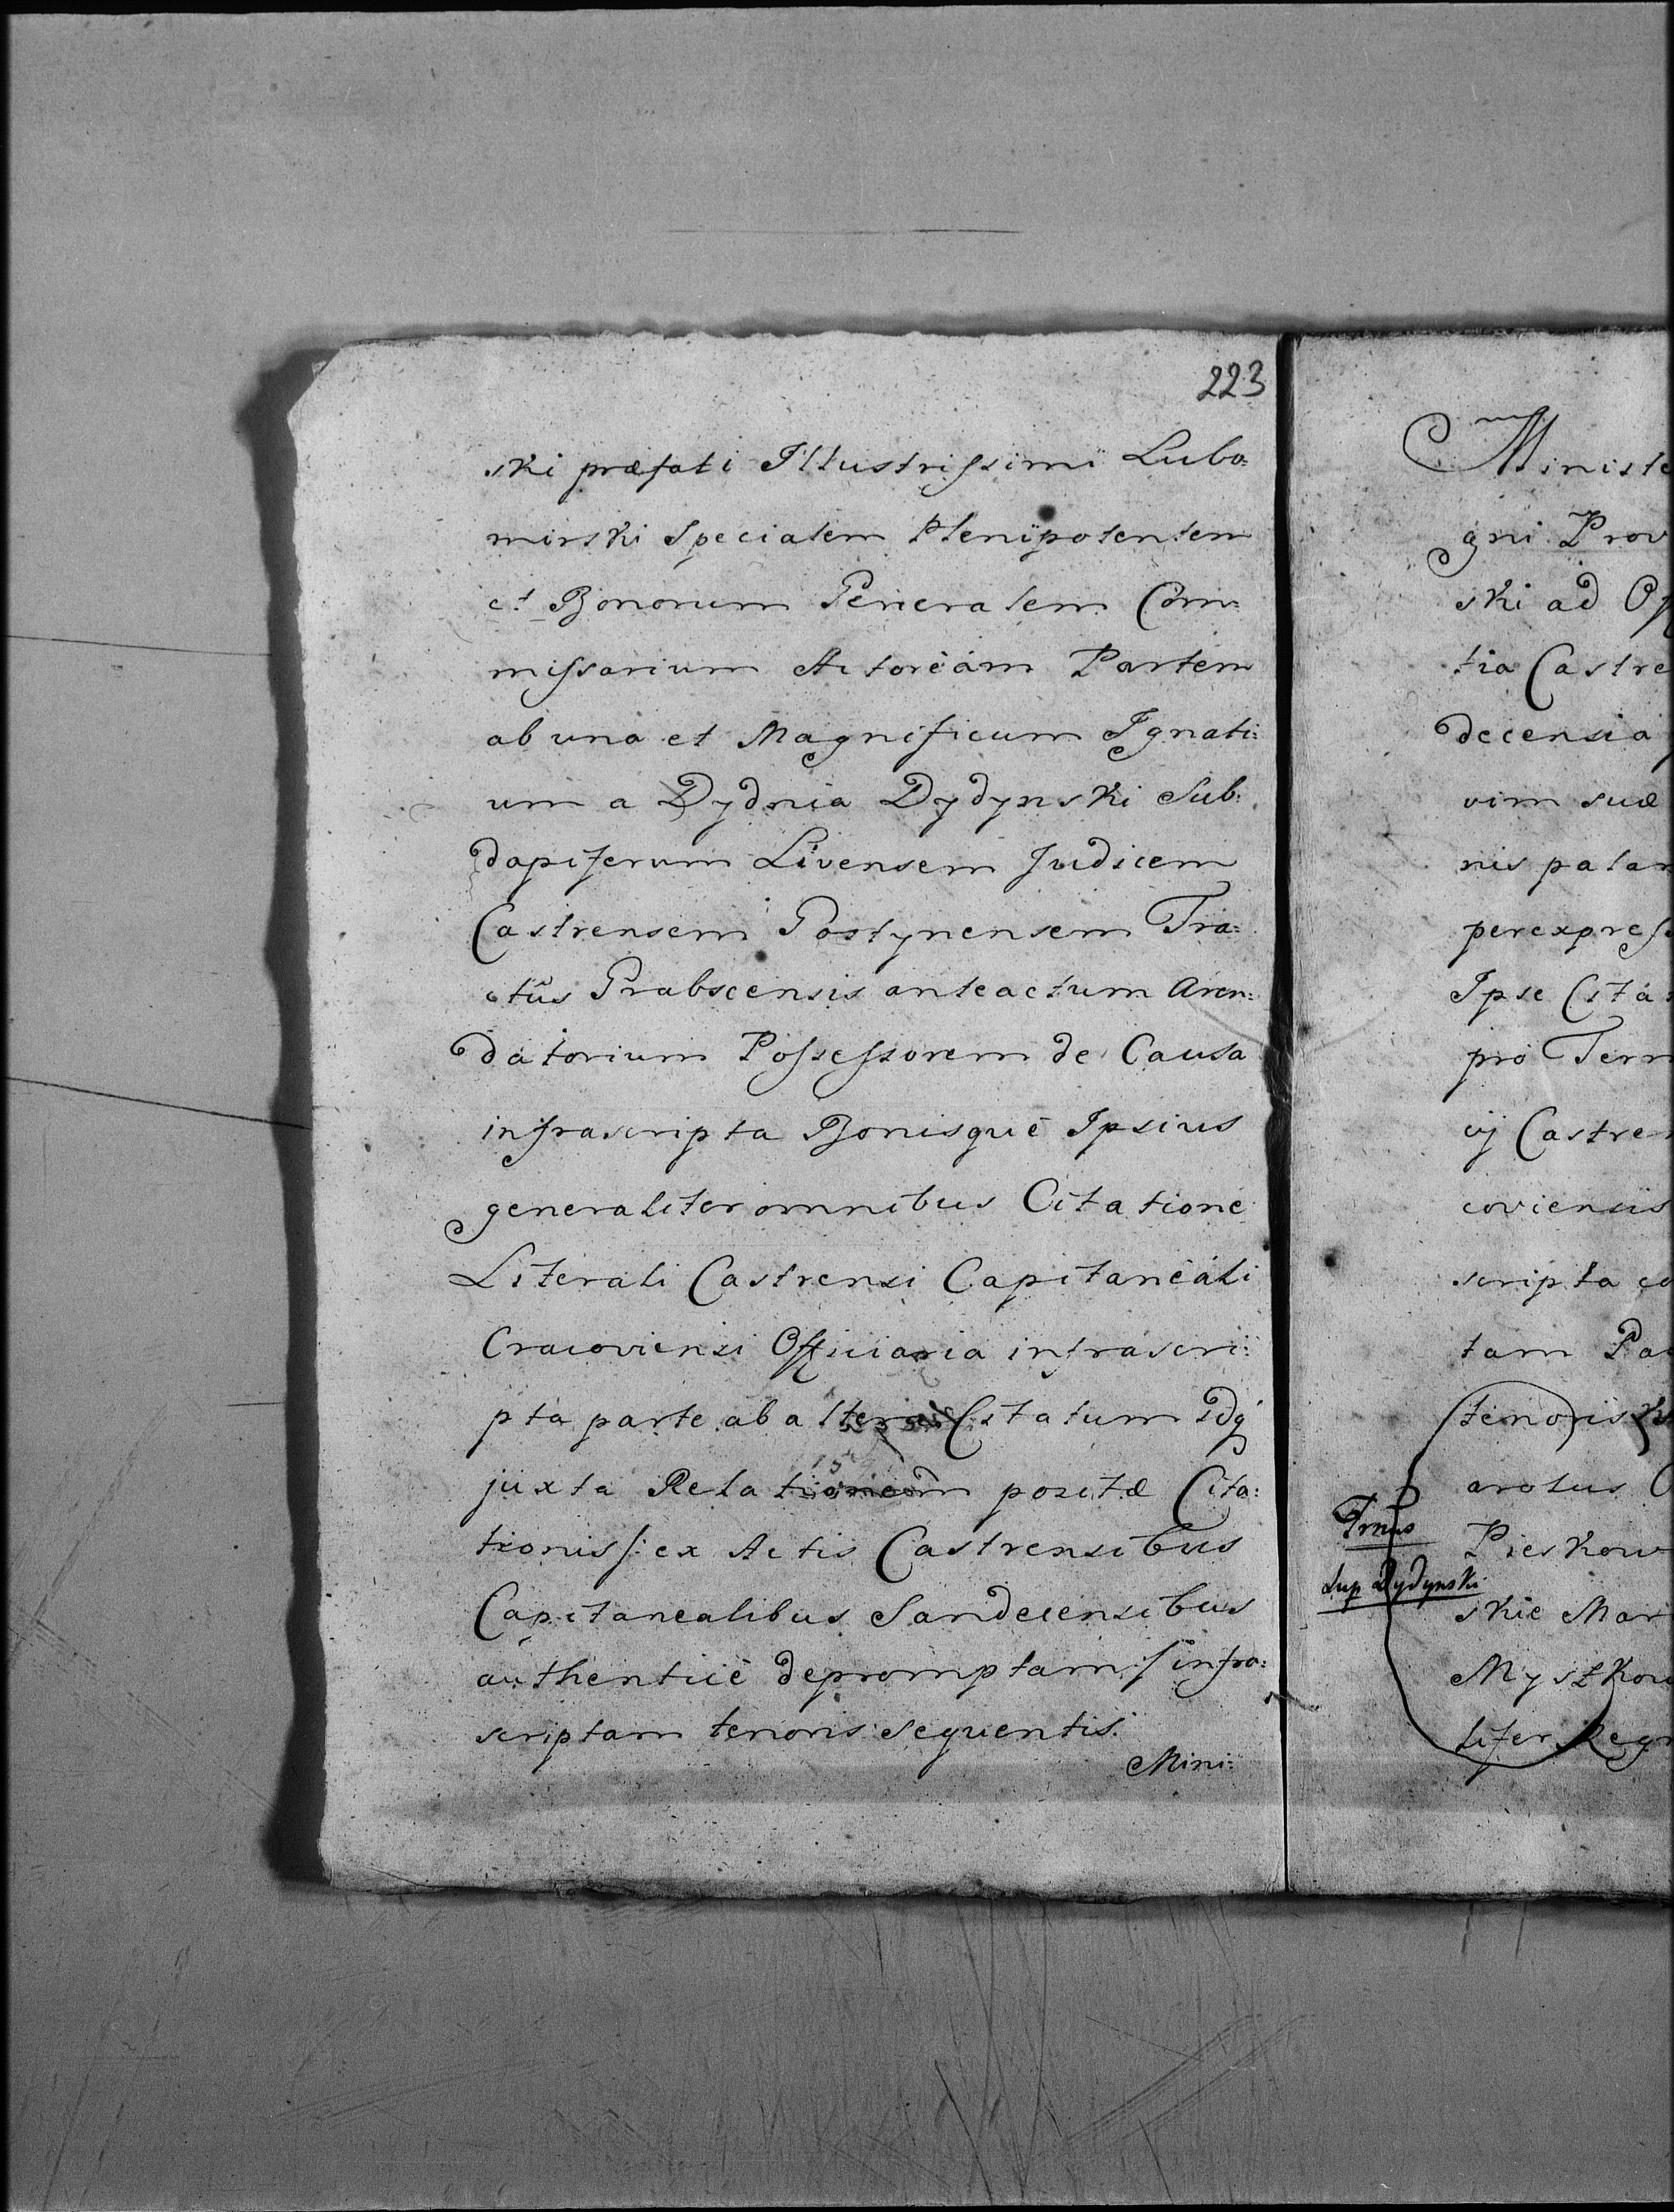 223
ski præfati Illustrissimi Lubo=
mirski Specialem Plenipotentem
et Bonorum Generalem Com=
missarium Actoream Partem
ab una et Magnificum Ignati=
um a Dydnia Dydynski Sub=
dapiferum Livensem Judicem
Castrensem Gostynensem Tra=
ctûs Grabscensis anteactum Aren=
datorium Possessorem de Causa
infrascripta Bonisque Ipsius
generaliter omnibus Citatione
Literali Castrensi Capitaneali
Cracoviensi Officiaria infrascri=
pta parte ab altera Citatum idq
juxta Relationem positæ Cita=
tionis /: ex Actis Castrensibus
Capitanealibus Sandecensibus
authenticè depromptam :/ infra=
scriptam tenoris sequentis.
Mini=
Ministe
gni Prov
ski ad Off
tia Castre
decensia
vim suæ
nis palam
per express
Ipse Cita
pro Term
ij Castren
coviensis
scripta co
tam Pa
tenoris
arolus
Pieskow
skie Mar
Myszkow
lifer Regn
Trnus
Sup Dydynski